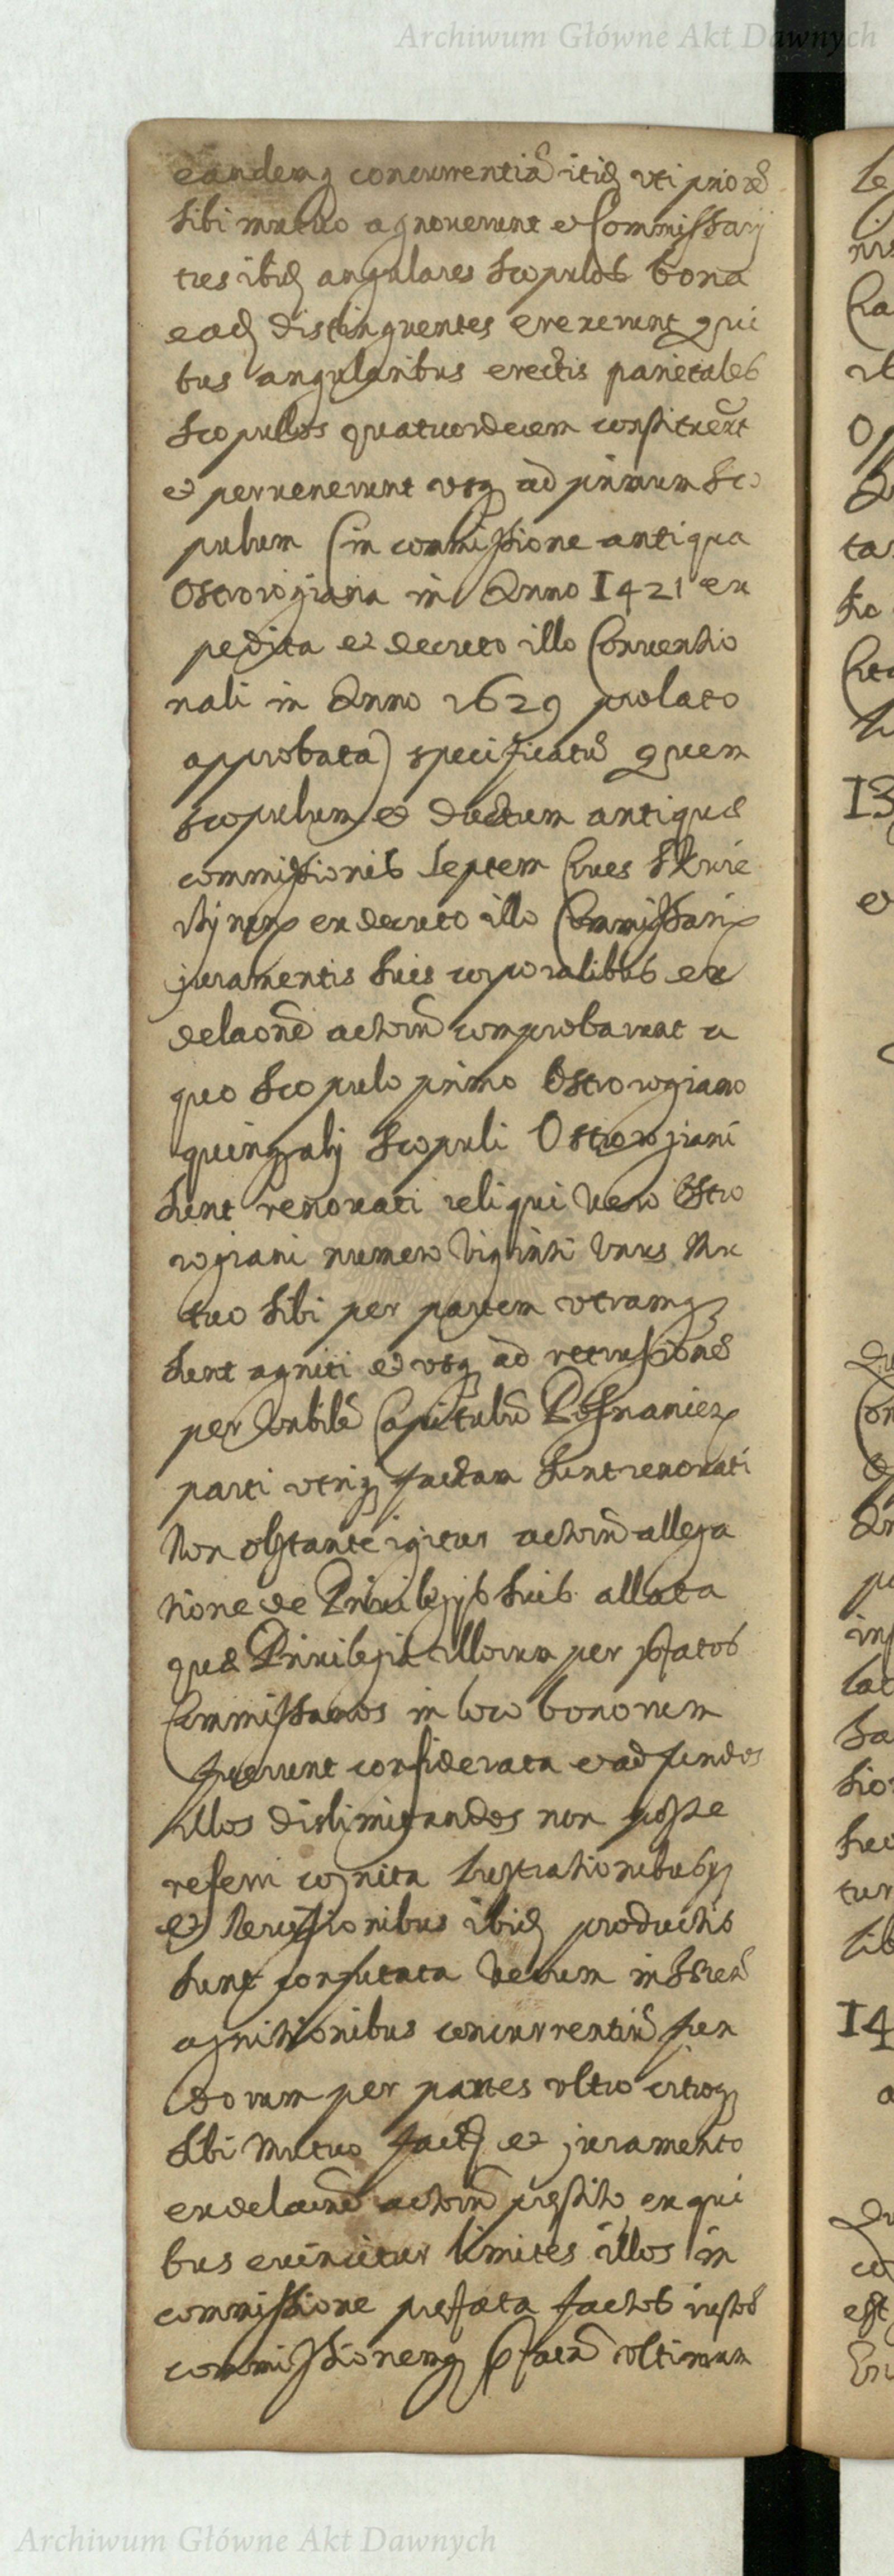 Archiwum Główne Akt Dawnych
eandemq concurrentiã itiđ vti priorẽ
sibi mutuo agnoverunt et Commissarij
tres ibiđ angulares scopulos bona
eađ distinguentes erexerunt qui
bus angularibus erectis parietales
scopulos quatuordecem constituer̃t
et pervenerunt vsq ad primum sco
pulum (in commissione antiqua
Ostrorogiana in Anno 1421 ex
pedita et decreto illo Conventio
nali in Anno 1629 prolato
approbata) specificatũ quem
scopulum et ductum antiquẽ
commissionis septem Cives
ex decreto illo Commissariꝝ
juramentis suis corporalibus ex
delaonẽ actorũ comprobarunt a
quo scopulo primo Ostrorogiano
quinq alij scopuli Ostrorogiani
sunt renovati reliqui vero Ostro
rogiani numero viginti vnus Mu
tuo sibi per partem vtramq
sunt agniti et vsq ad retrusionẽ
per Capitulũ Posnanien
parti vtriq factam sunt renovati
Non obstante igitur actorũ allega
tione de Privilegijs suis allata
quæ Privilegia illorum per pfatos
Commissarios in loco bonorum
fuerunt considerata et ad fundos
illos dislimitandos non posse
referri cognita lustrationibusq
et Revisionibus ibiđ productis
sunt confutata verum
agnitionibus concurrentiũ fun
dorum per partes vltro citroq
sibi mutuo factꝭ et juramento
ex delaonẽ actorũ præstito, ex qui
bus evincitur limites illos in
commissione præfata factos iustos
commissionemq pfatã vltimam
Archiwum Główne Akt Dawnych